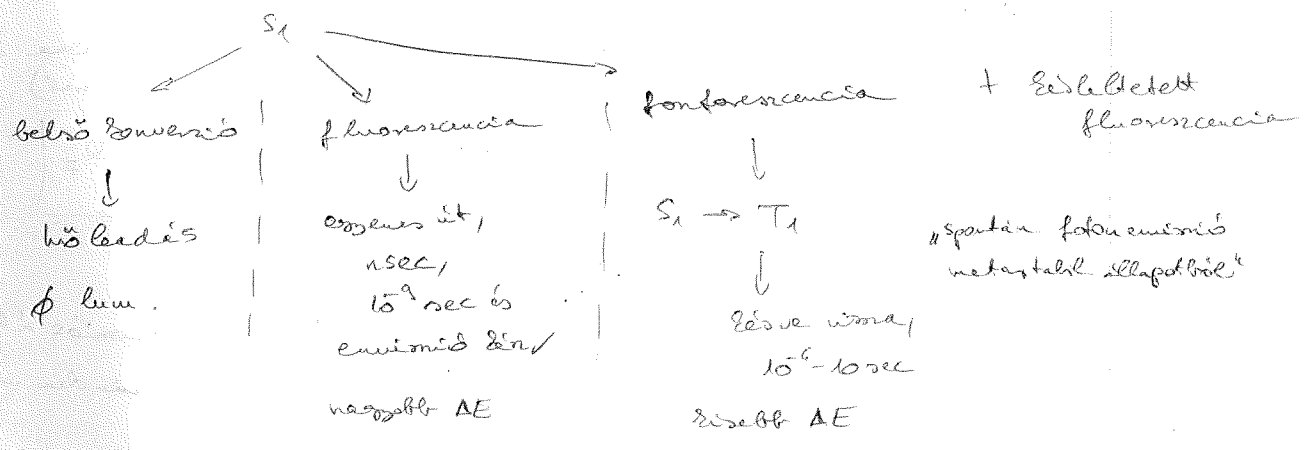 S₁
belső konverzió
↓
hőleadás
∅ lum.
fluoreszcencia
↓
egyenes út,
nsec,
10⁻⁹ sec és
emisszió kín✓
nagyobb ΔE
foszforeszcencia
↓
S₁ → T₁
↓
késve vissza,
10⁻⁶-10 sec
kisebb ΔE
+ késleltetett
fluoreszcencia
„spontán fotonemisszió
metastabil állapotból"